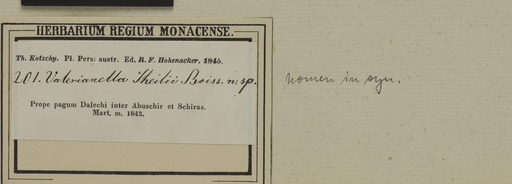 HERBARIUM REGIUM MONACENSE.
Th. Kotschy. Pl. Pers: austr. Ed. R. F. Hohenacker. 1845.
201. Valerianella Theilii Boiss. n. sp.
nomen in syn.
Prope pagum Dalechi inter Abuschir et Schiras.
Mart. m. 1842.